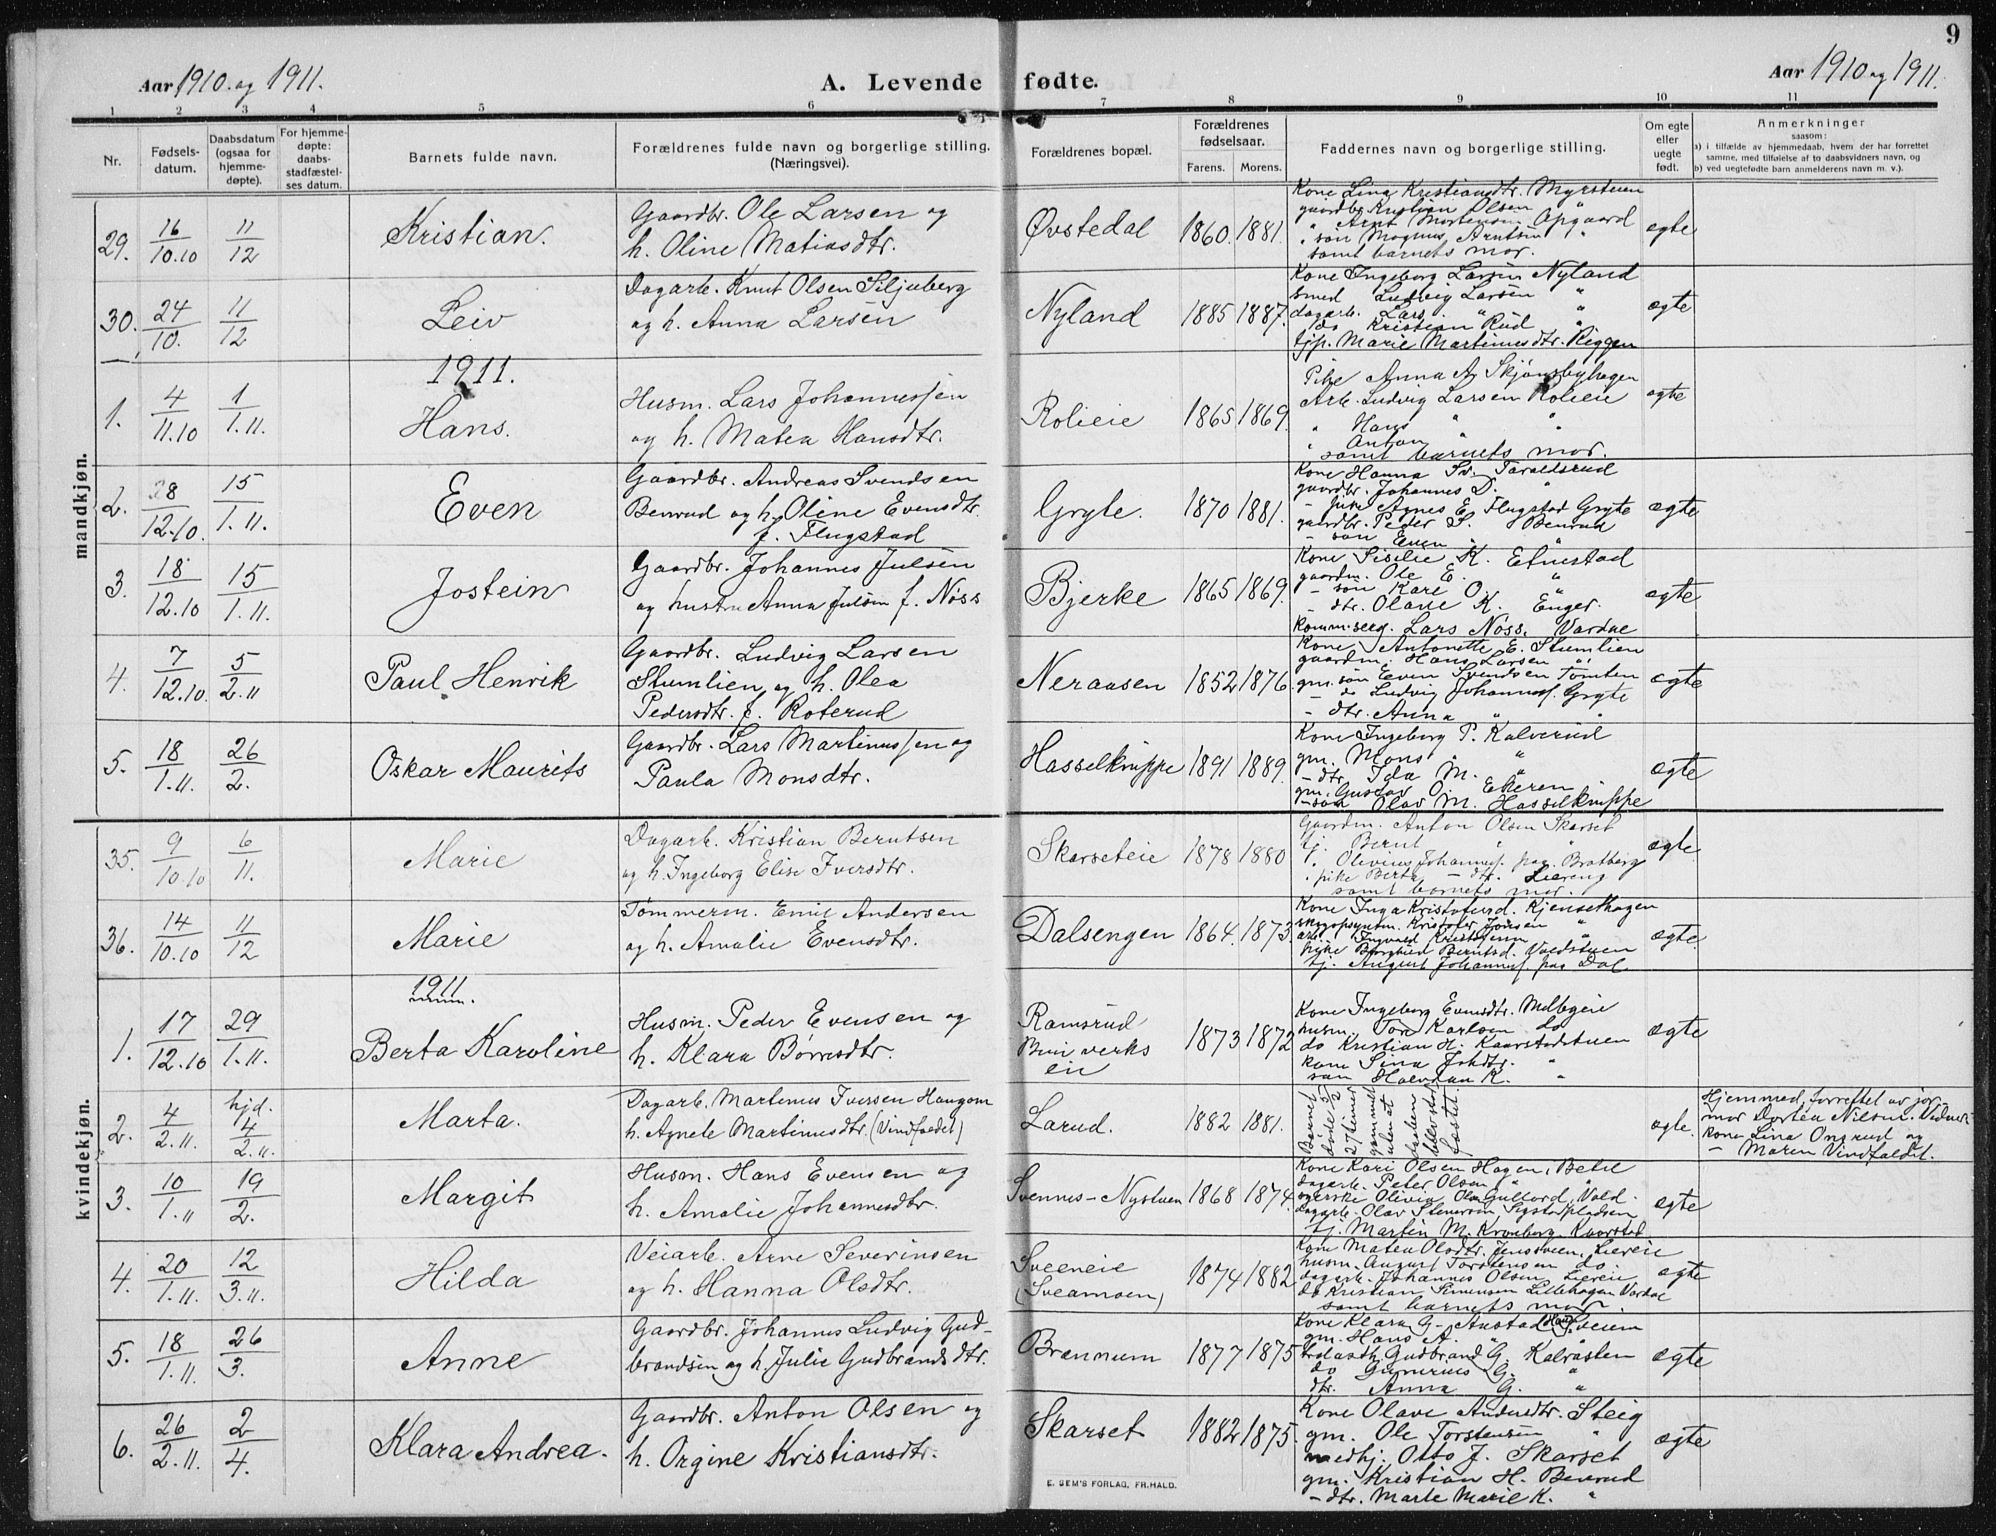 9
Aar 1910 og 1911.
A. Levende fødte.
Aar 1910 og 1911.
1 2 3 4 5 6 7 8 9 10 11
Nr.
Fødsels-
datum.
Daabsdatum
(ogsaa for
hjemme-
døpte).
For hjemme-
døpte:
daabs-
stadfæstel-
ses datum.
Barnets fulde navn.
Forældrenes fulde navn og borgerlige stilling.
(Næringsvei).
Forældrenes bopæl.
Forældrenes
fødselsaar.
Farens. Morens.
Faddernes navn og borgerlige stilling.
Om egte
eller
uegte
født.
Anmerkninger
saasom:
a) i tilfælde av hjemmedaab, hvem der har forrettet
samme, med tilføielse af to daabsvidners navn, og
b) ved uegtefødte barn anmelderens navn m. v.).
mandkjøn.
29. 16/10.10 11/12 Kristian.
Gaardbr. Ole Larsen og
h. Oline Matiasdtr.
Øvstedal 1860. 1881.
Kone Lina Kristiansdtr. Myrstuen
gaardbr. Kristian Olsen "
" Arnt Mortensen Opgaard
" søn Magnus Arntsen "
samt barnets mor.
egte
30. 24/10. 11/12 Leiv
Dagarb. Knut Olsen Siljuberg
og h. Anna Larsen
Nyland 1885 1887.
Kone Ingeborg Larsen Nyland
smed Ludvig Larsen "
dagarb. Lars " "
do Kristian Rud "
tjp. Marie Martinusdtr. Riggen
egte
1911.
1. 4/11.10 1/1.11. Hans.
Husm. Lars Johannessen
og h. Matea Hansdtr.
Rolieie 1865 1869.
Pike Anna A. Skjønsbyhagen
Arb. Ludvig Larsen Rolieie
" Hans " "
" Anton "
" samt barnets mor.
egte
2. 28/12.10. 15/1.11. Even
Gaardbr. Andreas Svendsen
Benrud og h. Oline Evensdtr.
f. Flugstad
Gryte. 1870 1881.
Kone Hanna Sv. Taraldsrud
gaardbr. Johannes D. "
- pike Agnes E. Flugstad Gryte
gaardbr. Peder S. Benrud
- søn Even " "
egte
3. 18/12.10 15/1.11. Jostein
Gaardbr. Johannes Julsen
og hustru Anna Julsen f. Nøss
Bjerke 1865 1869.
Kone Siselie K. Etnestad
gaardm. Ole E. "
- søn Kare O. "
- dtr. Olave K. Enger.
kommiserg. Lars Nøss. Vardue
egte
4. 7/12.10. 5/2.11 Paul Henrik
Gaardbr. Ludvig Larsen
Stumlien og h. Olea
Pedersdtr. f. Roterud
Neraasen 1852 1876.
Kone Antonette E. Stumlien
gaardm. Hans Larsen "
gm. søn Even Svendsen Tømten
- do Ludvig Johanness. Gryte
- dtr. Anna " "
egte
5. 18/1.11. 26/2. Oskar Maurits
Gaardbr. Lars Martinussen og
Paula Monsdtr.
Hasselknippe 1891 1889.
Kone Ingeborg P. Kalverud
gm. Mons " "
- dtr. Ida M. "
gm. Gustav O. Ekeren
- søn Olav M. Hasselknippe
egte
kvindekjøn.
35. 9/10.10 6/11. Marie
Dagarb. Kristian Berntsen
og h. Ingeborg Elise Iversdtr.
Skarseteie 1878 1880
Gaardm. Anton Olsen Skarset
tj. Bernt " "
" Olevius Johanness. paa Bratberg
" pike Berta - dtr. Liereng
samt barnets mor.
egte
36. 14/10.10 11/12 Marie
Tømmerm. Emil Andersen
og h. Amalie Evensdtr.
Dalsengen 1864. 1873.
Kone Inga Kristofersd. Kjensethagen
Kristofer Jonsen "
arb. Ingvald Kristofersen "
pike Borghild Berntsd. Voldstuen
tj. August Johanness. paa Dal
egte.
1911
1. 17/12.10 29/1.11. Berta Karoline
Husm. Peder Evensen og
h. Klara Børresdtr.
Ramsrud
Bruverks
eie
1873 1872
Kone Ingeborg Evensdtr. Melbyeie
husm. Tore Karlsen do
do Kristian H. Kaarstadstuen
kone Sina Johdtr. "
søn Halvdan K. "
egte
2. 4/2.11. hjd. 4/2.11. Marta.
Dagarb. Martinus Iversen Haugom
h. Agnete Martinusdtr. (Vindfaldet)
Larud. 1882 1881.
Barnet
døde 5/2
27 timer
gammelt
uten at
daaben
blev stad-
fæstet.
egte.
Hjemmed. forrettet av jor-
mor Dortea Nilsen. Vidner:
kone Lina Ongrud og
- Maren Vindfaldet.
3. 10/1.11 19/2. Margit
Husm. Hans Evensen og
h. Amalie Johannesdtr.
Svennes-Nystuen 1868 1874.
Kone Kari Olsen Hagen, Betel
dagarb. Peter Olsen " "
Olivia Olsen Gullord, Vold.
dagarb. Olav Stenersen Sigstadpladsen
tj. Martin M. Kronborg. Kvarstad
egte
4. 20/1.11. 12/3.11. Hilda
Veiarb. Arne Severinsen
og h. Hanna Olsdtr.
Sveeneie
(Sveamoen)
1874 1882
Kone Matea Olsdtr. Jensveen, Liereie
husm. August Torstensen do.
dagarb. Johannes Olsen Liereie
do Kristian Simensen Lillehagen Vardal
samt barnets mor.
egte
5. 18/1.11. 26/3. Anne
Gaardbr. Johannes Ludvig Gud-
brandsen og h. Julie Gudbrandsdtr.
Brennum 1877 1875
Kone Klara G. Austad Sveum
gm. Hans A. " "
Gudbrand G. Kalrasten
do Gunerius G. "
dtr. Anna G. "
egte
6. 26/2.11. 2/4. Klara Andrea.
Gaardbr. Anton Olsen og
h. Orgine Kristiansdtr.
Skarset 1882 1875.
Kone Olave Andersdtr. Steig
gm. Ole Torstensen "
medhj. Otto J. Skarset
gm. Kristian H. Benrud
- dtr. Marte Marie K. "
egte
E. SEM'S FORLAG, FR.HALD.